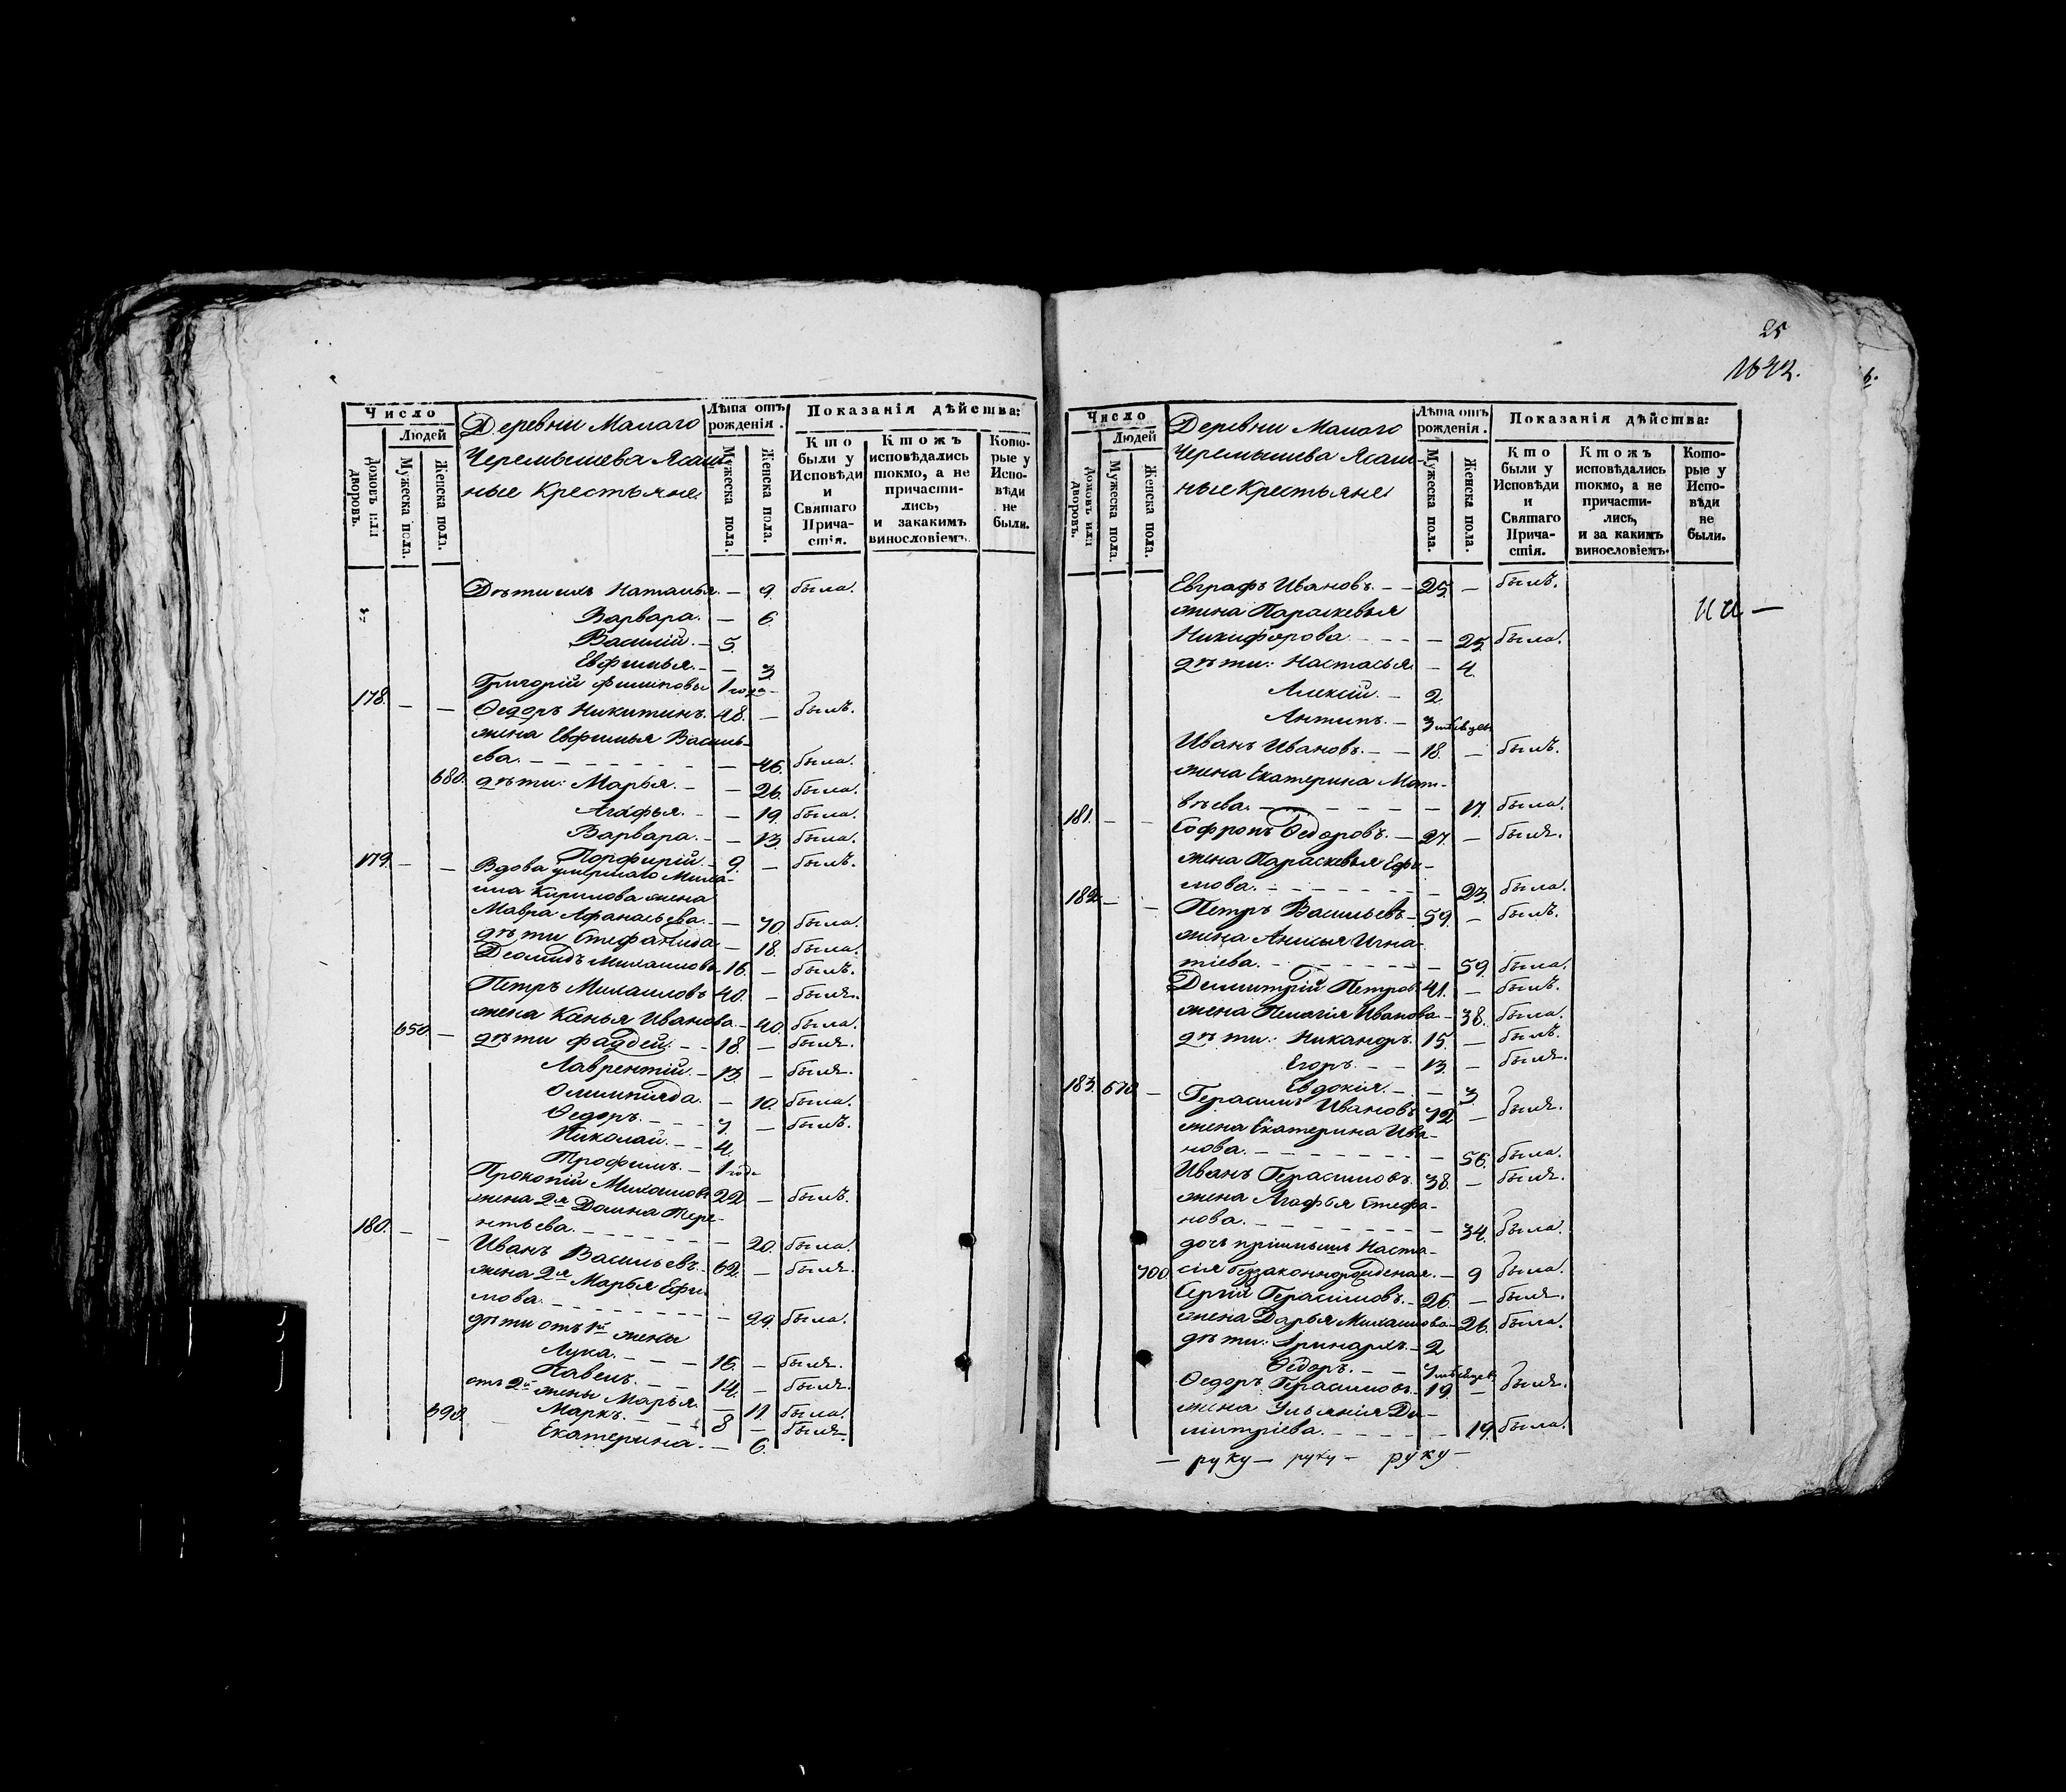 Число
Людей
Домовъ или дворовъ.
Мужеска пола.
Женска пола.
Деревни Малаго
Черемышева Ясаш-
ные Крестьяне
Лѣта отъ рожденія.
Мужеска пола.
Женска пола.
Показанія дѣйства:
Кто были у Исповѣди и Святаго Причастія.
Ктожъ исповѣдались токмо, а не причастились, и закакимъ винословіемъ.
Которые у Исповѣди не были.
Дѣти ихъ Наталья. — 9. была.
Варвара. — 6
Василій. — 5.
Евфимья. — — 3
Григорій Филиповъ 1 года —
178. — — Ѳедоръ Никитинъ. 48. — былъ.
жена Евфимья Василь-
ева. — 46. была.
680. дѣти: Марья. — — 26. была.
Агафья. — — 19. была.
Варвара. — — 13. была.
Порфирій. — 9. — былъ.
179. — — Вдова умершаго Миха-
ила Кирилова жена
Мавра Афанасьева. — — 70. была.
дѣти Стефанида — 18. была.
Діомидъ Михаиловъ 16. — былъ.
Петръ Михаиловъ 40. — былъ.
жена Ксенья Иванова. — 40. была.
650. — дѣти Фаддей. — — 18. — былъ.
Лаврентій. — 13. — былъ.
Олимпіяда. — — 10. была.
Ѳедоръ. — — 7. — былъ.
Николай. — — 4.
Трофимъ. — 1 года
Прокопій Михаиловъ 22. — былъ.
жена 2я Домна Тере-
нтьева. — 20. была.
180. — — Иванъ Васильевъ. 62. — былъ.
жена 2я Марья Ефи-
мова. — 29. была.
дѣти отъ 1й жены
Лука. — — — 16. — былъ.
Павелъ. — — 14. — былъ.
отъ 2й жены Марья. — 11. была.
Маркъ. — — — 8 — былъ.
690. Екатерина. — — 6.
25
1642.
Число
Людей
Домовъ или дворовъ.
Мужеска пола.
Женска пола.
Деревни Малаго
Черемышева Ясаш-
ные Крестьяне
Лѣта отъ рожденія.
Мужеска пола.
Женска пола.
Показанія дѣйства:
Кто были у Исповѣди и Святаго Причастія.
Ктожъ исповѣдались токмо, а не причастились, и за какимъ винословіемъ.
Которые у Исповѣди не были.
Евграфъ Ивановъ. — — 25. — былъ.
жена Параскевья
Никифорова. — — — — 25. была.
дѣти: Настасья. — 4.
Алексій. — 2.
Антипъ. — 3 мѣсяцев.
Иванъ Ивановъ. — — 18. — былъ.
жена Екатерина Мат-
вѣева. — 17. была.
181. — — Софронъ Ѳедоровъ. — 27. — былъ.
жена Параскевья Ефи-
мова. — 23. была.
182. — — Петръ Васильевъ. 59. — былъ.
жена Анисья Игна-
тіева. — 59. была.
Димитрій Петров. 41. — былъ.
жена Пелагія Иванова — 38. была.
дѣти: Никаноръ. 15. — былъ.
Егоръ. — — 13. — былъ.
Евдокія. — — 3
183. 670. — Герасимъ Ивановъ 72 — былъ.
жена Екатерина Ива-
нова. — 56. была.
Иванъ Герасимовъ. 38. — былъ.
жена Агафья Стефа-
нова. — 34. была.
дочь Наста-
700. сія беззаконнорожденая. — 9 была.
Сергій Герасимовъ. — 26. — былъ.
жена Дарья Михаилова — 26. была.
дѣти: Іринархъ. — 2
Ѳедоръ. — — 7 мѣсяцев.
Ѳедоръ Герасимовъ. 19. — былъ.
жена Ульянія Ди-
митріева. — 19. была.
— руку — руку — руку —